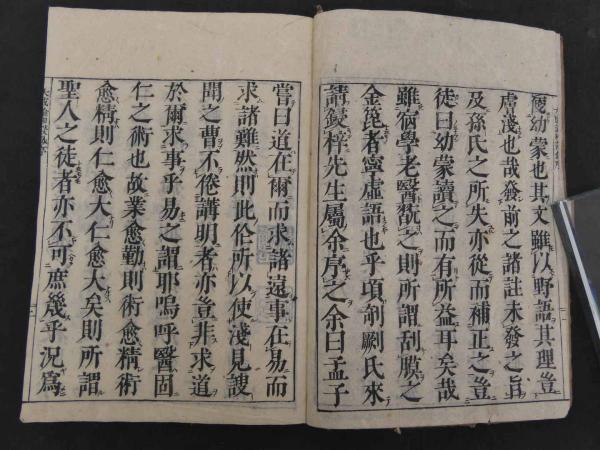 便幼蒙也其文雖以野語其理豈
膚淺也哉發前之諸註未發之旨
及孫氏之所失亦從而補正之豈
徒曰幼蒙讀之而有所益耳矣哉
雖宿學老醫翫之則所謂刮膜之
金箆者寧虛語也乎頃剞劂氏來
請鋟梓先生屬余序之余曰孟子
嘗曰道在爾而求諸遠事在易而
求諸難然則此伦所以使淺見謏
聞之曹不倦講明者亦豈非求道
於爾求事乎易之謂耶嗚呼醫固
仁之術也故業愈勤則術愈精術
愈精則仁愈大仁愈大矣則所謂
聖人之徒者亦不可庶幾乎況爲